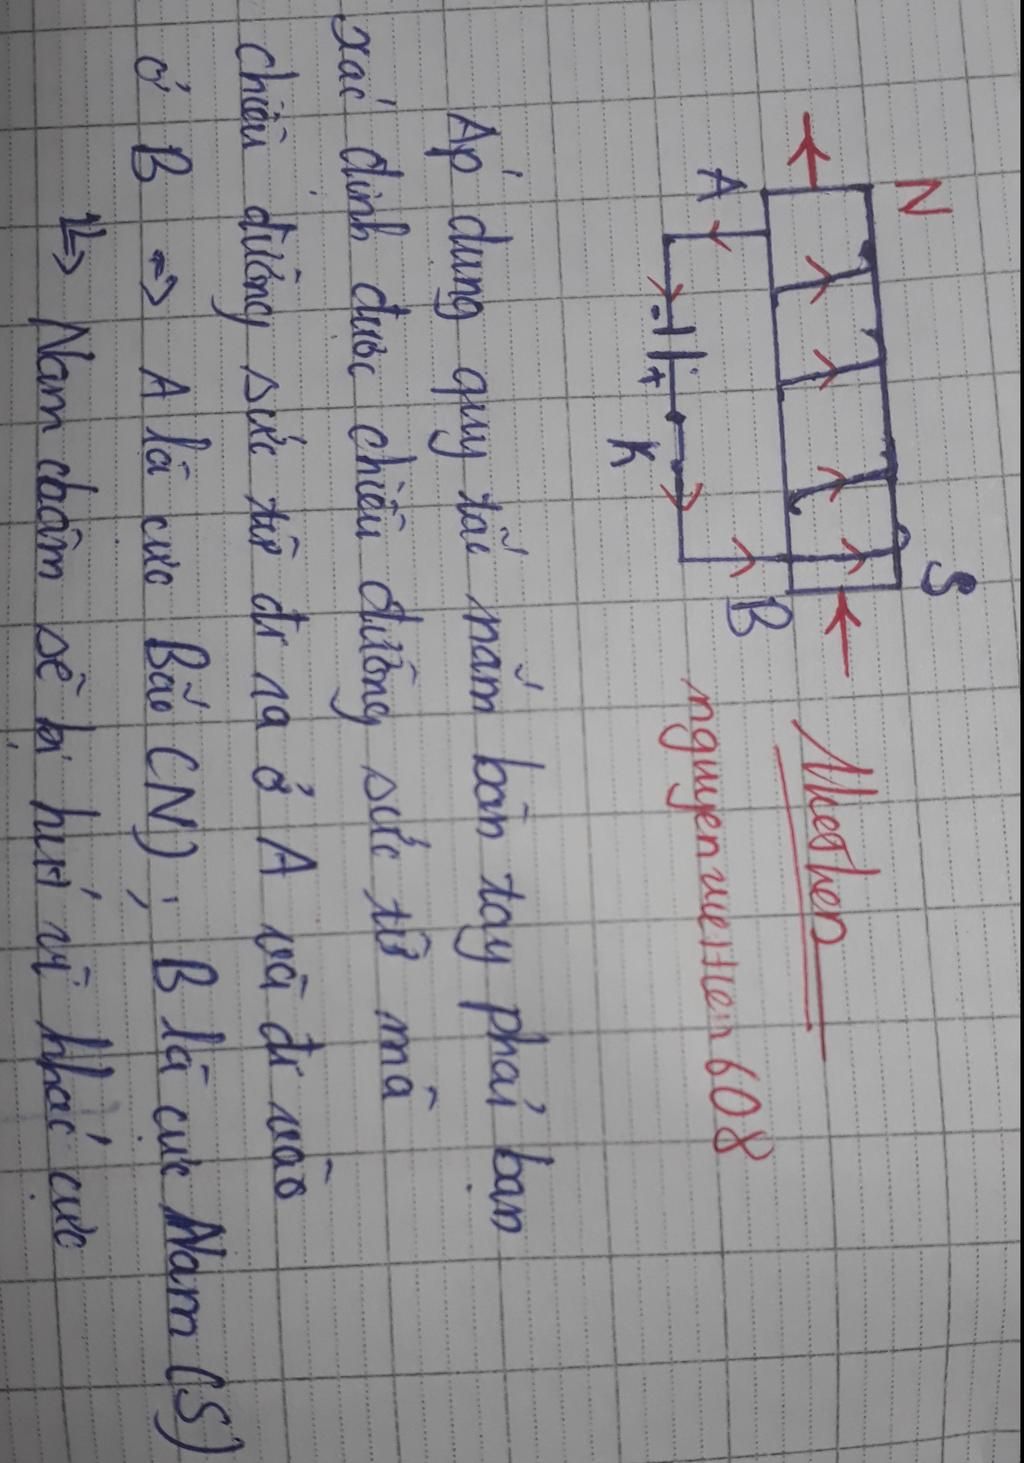 N
S
A
B
-
+
K
nguyenvietlen608
Áp dụng quy tắc nắm bàn tay phải bạn
xác định được chiều đường sức từ mà
chiều đường sức từ đi ra ở A và đi vào
ở B => A là cực Bắc (N); B là cực Nam (S)
=> Nam châm sẽ bị hút vì khác cực